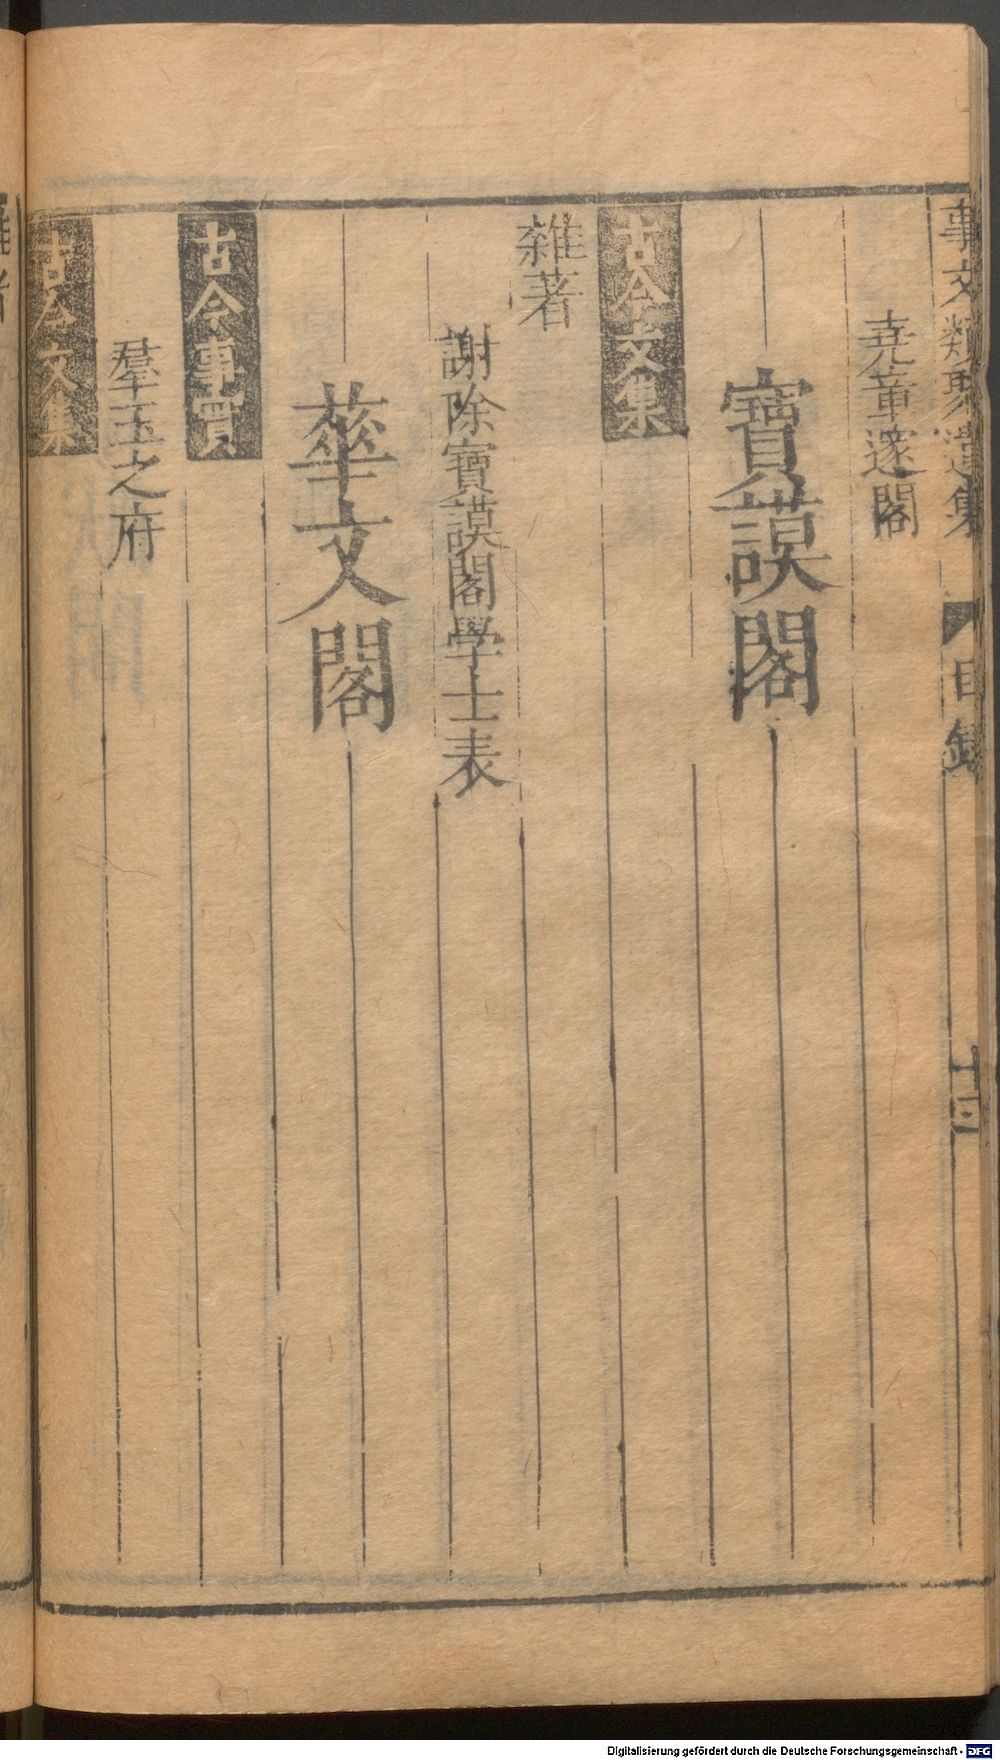 事文類聚遺集 目錄 十三
堯章邃閣
寶謨閣
古今文集
雜著
謝除寶謨閣學士表
華文閣
古今事實
羣玉之府
古今文集
Digitalisierung gefördert durch die Deutsche Forschungsgemeinschaft - DFG